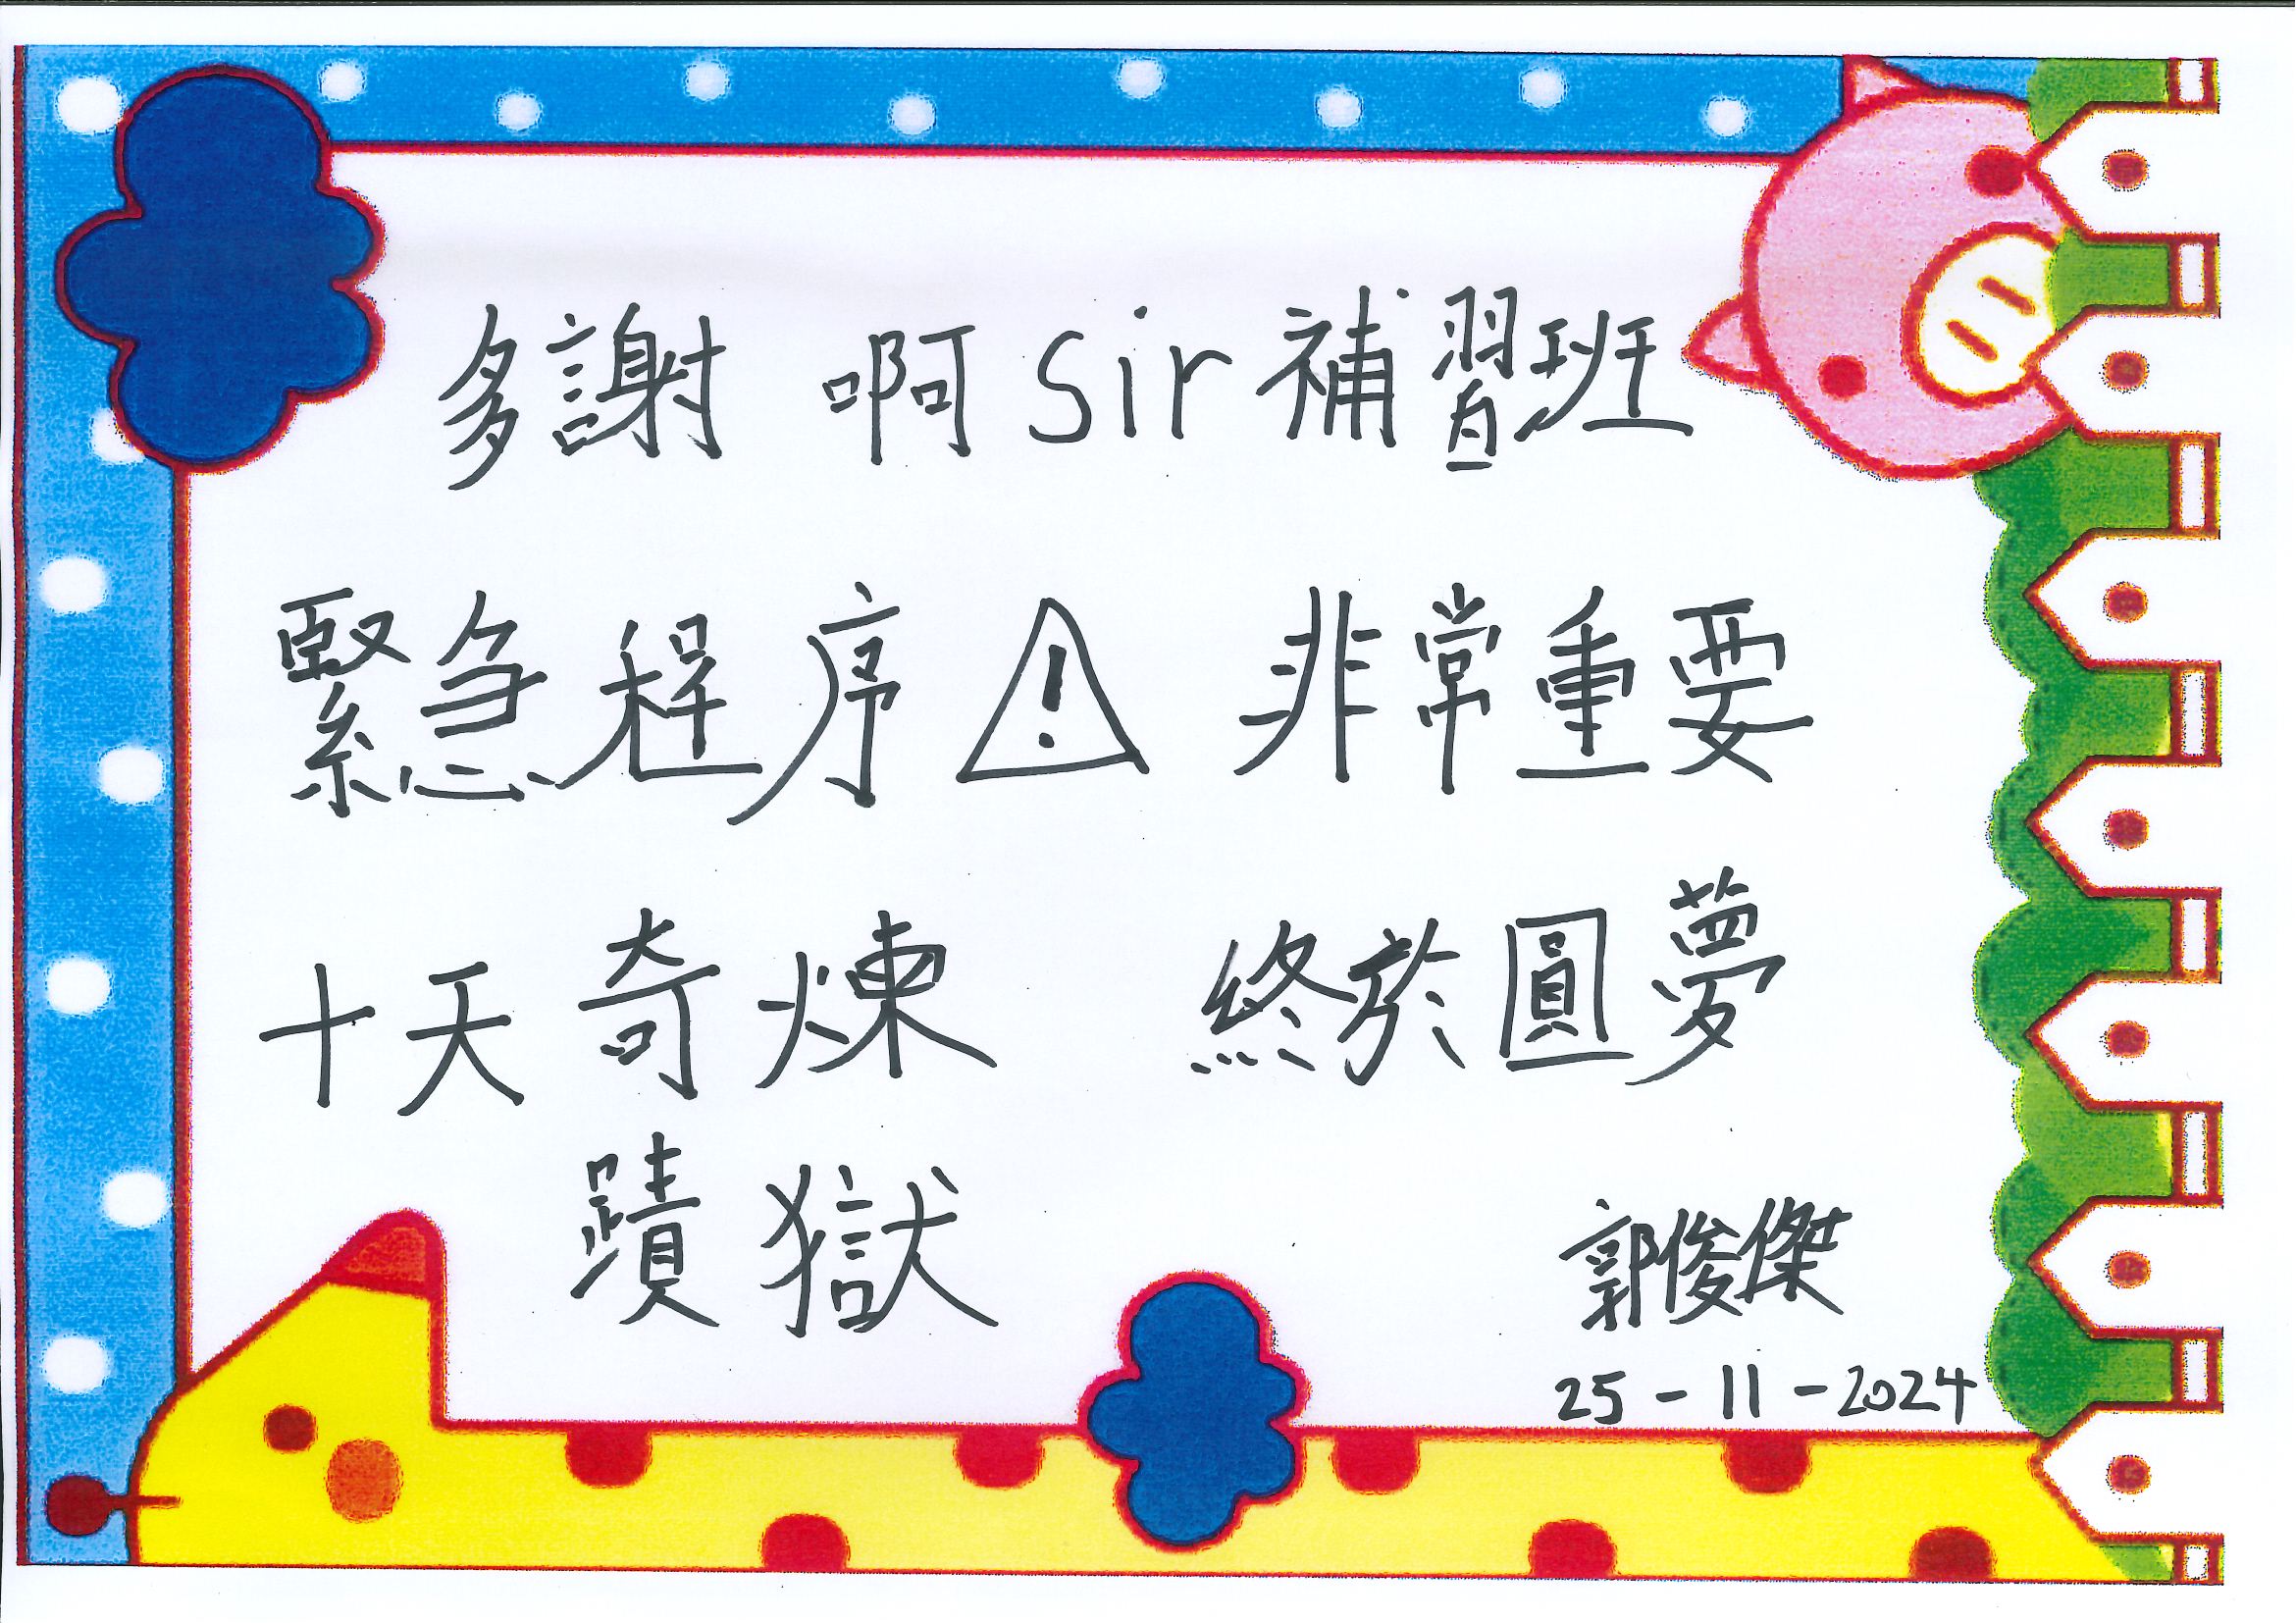 多謝 啊 Sir 補習班
緊急程序 ⚠ 非常重要
十天 奇 煉 終於圓夢
蹟 獄
郭俊傑
25 - 11 - 2024